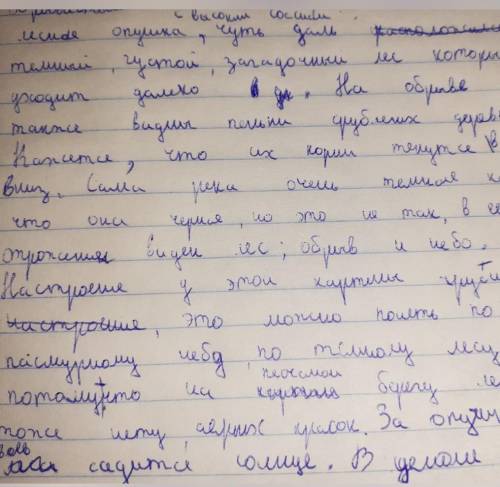 с высокими соснами.
лесная опушка, чуть даль
темный, густой, загадочный лес которы
уходит далеко в . На обрыве
также видны пеньки срубленых дерев
Кажется, что их корни тянутся в
вниз. Сама река очень темная к
что она черная, но это не так, в её
отражении виден лес, обрыв и небо.
Настроение у этой картины грустн
настроение, это можно понять по
пасмурному небу, по тёмному лесу
потому что на песчаном берегу не
тоже нету, ярких красок. За опуш
садится солнце. В целом